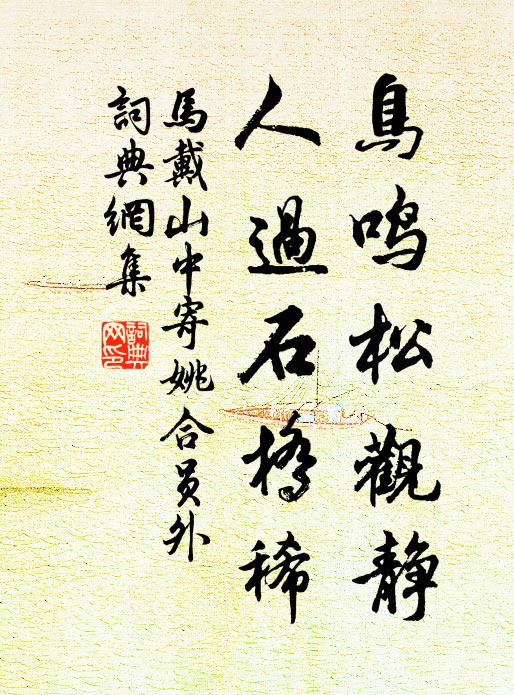 鳥鳴松觀静
人過石橋稀
馬戴山中寄姚合员外
詞典網集
詞典網印